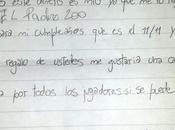 este dinero es mio, ya que me lo
Padre 200
mi cumpleaños que es el 11/11 y
regalo de ustedes me gustaria una ca
por todos los jugadores si se puede